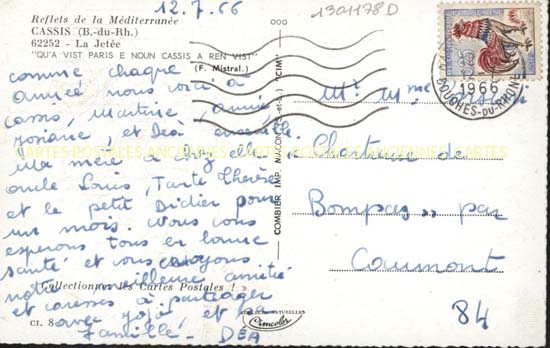 12.7.66
1301178D
Reflets de la Méditerranée
CASSIS (B.-du-Rh.)
62252 - La Jetée
"QU'A VIST PARIS E NOUN CASSIS A REN VIST"
(F. Mistral.)
comme chaque
année nous voici à
cassis, Martine, annie,
Josiane, et Dea ensemble.
Ma mère a chez elle
oncle Louis, Tante Thérèse
et le petit Didier pour
un mois. Nous vous
espérons tous en bonne
santé et vous envoyons
notre meilleure amitié
Collectionnez les Cartes Postales !
et caresses à partager
avec Jojo, et la
famille. DEA
CI. 8
COMBIER IMP. MACON
CIM
1966
BOUCHES-DU-RHONE
Mr. Mme
"Chartreuse de
Bompas" par
Caumont
84
Cimcolor
CARTES POSTALES ANCIENNES CARTES POSTALES ANCIENNES CARTES